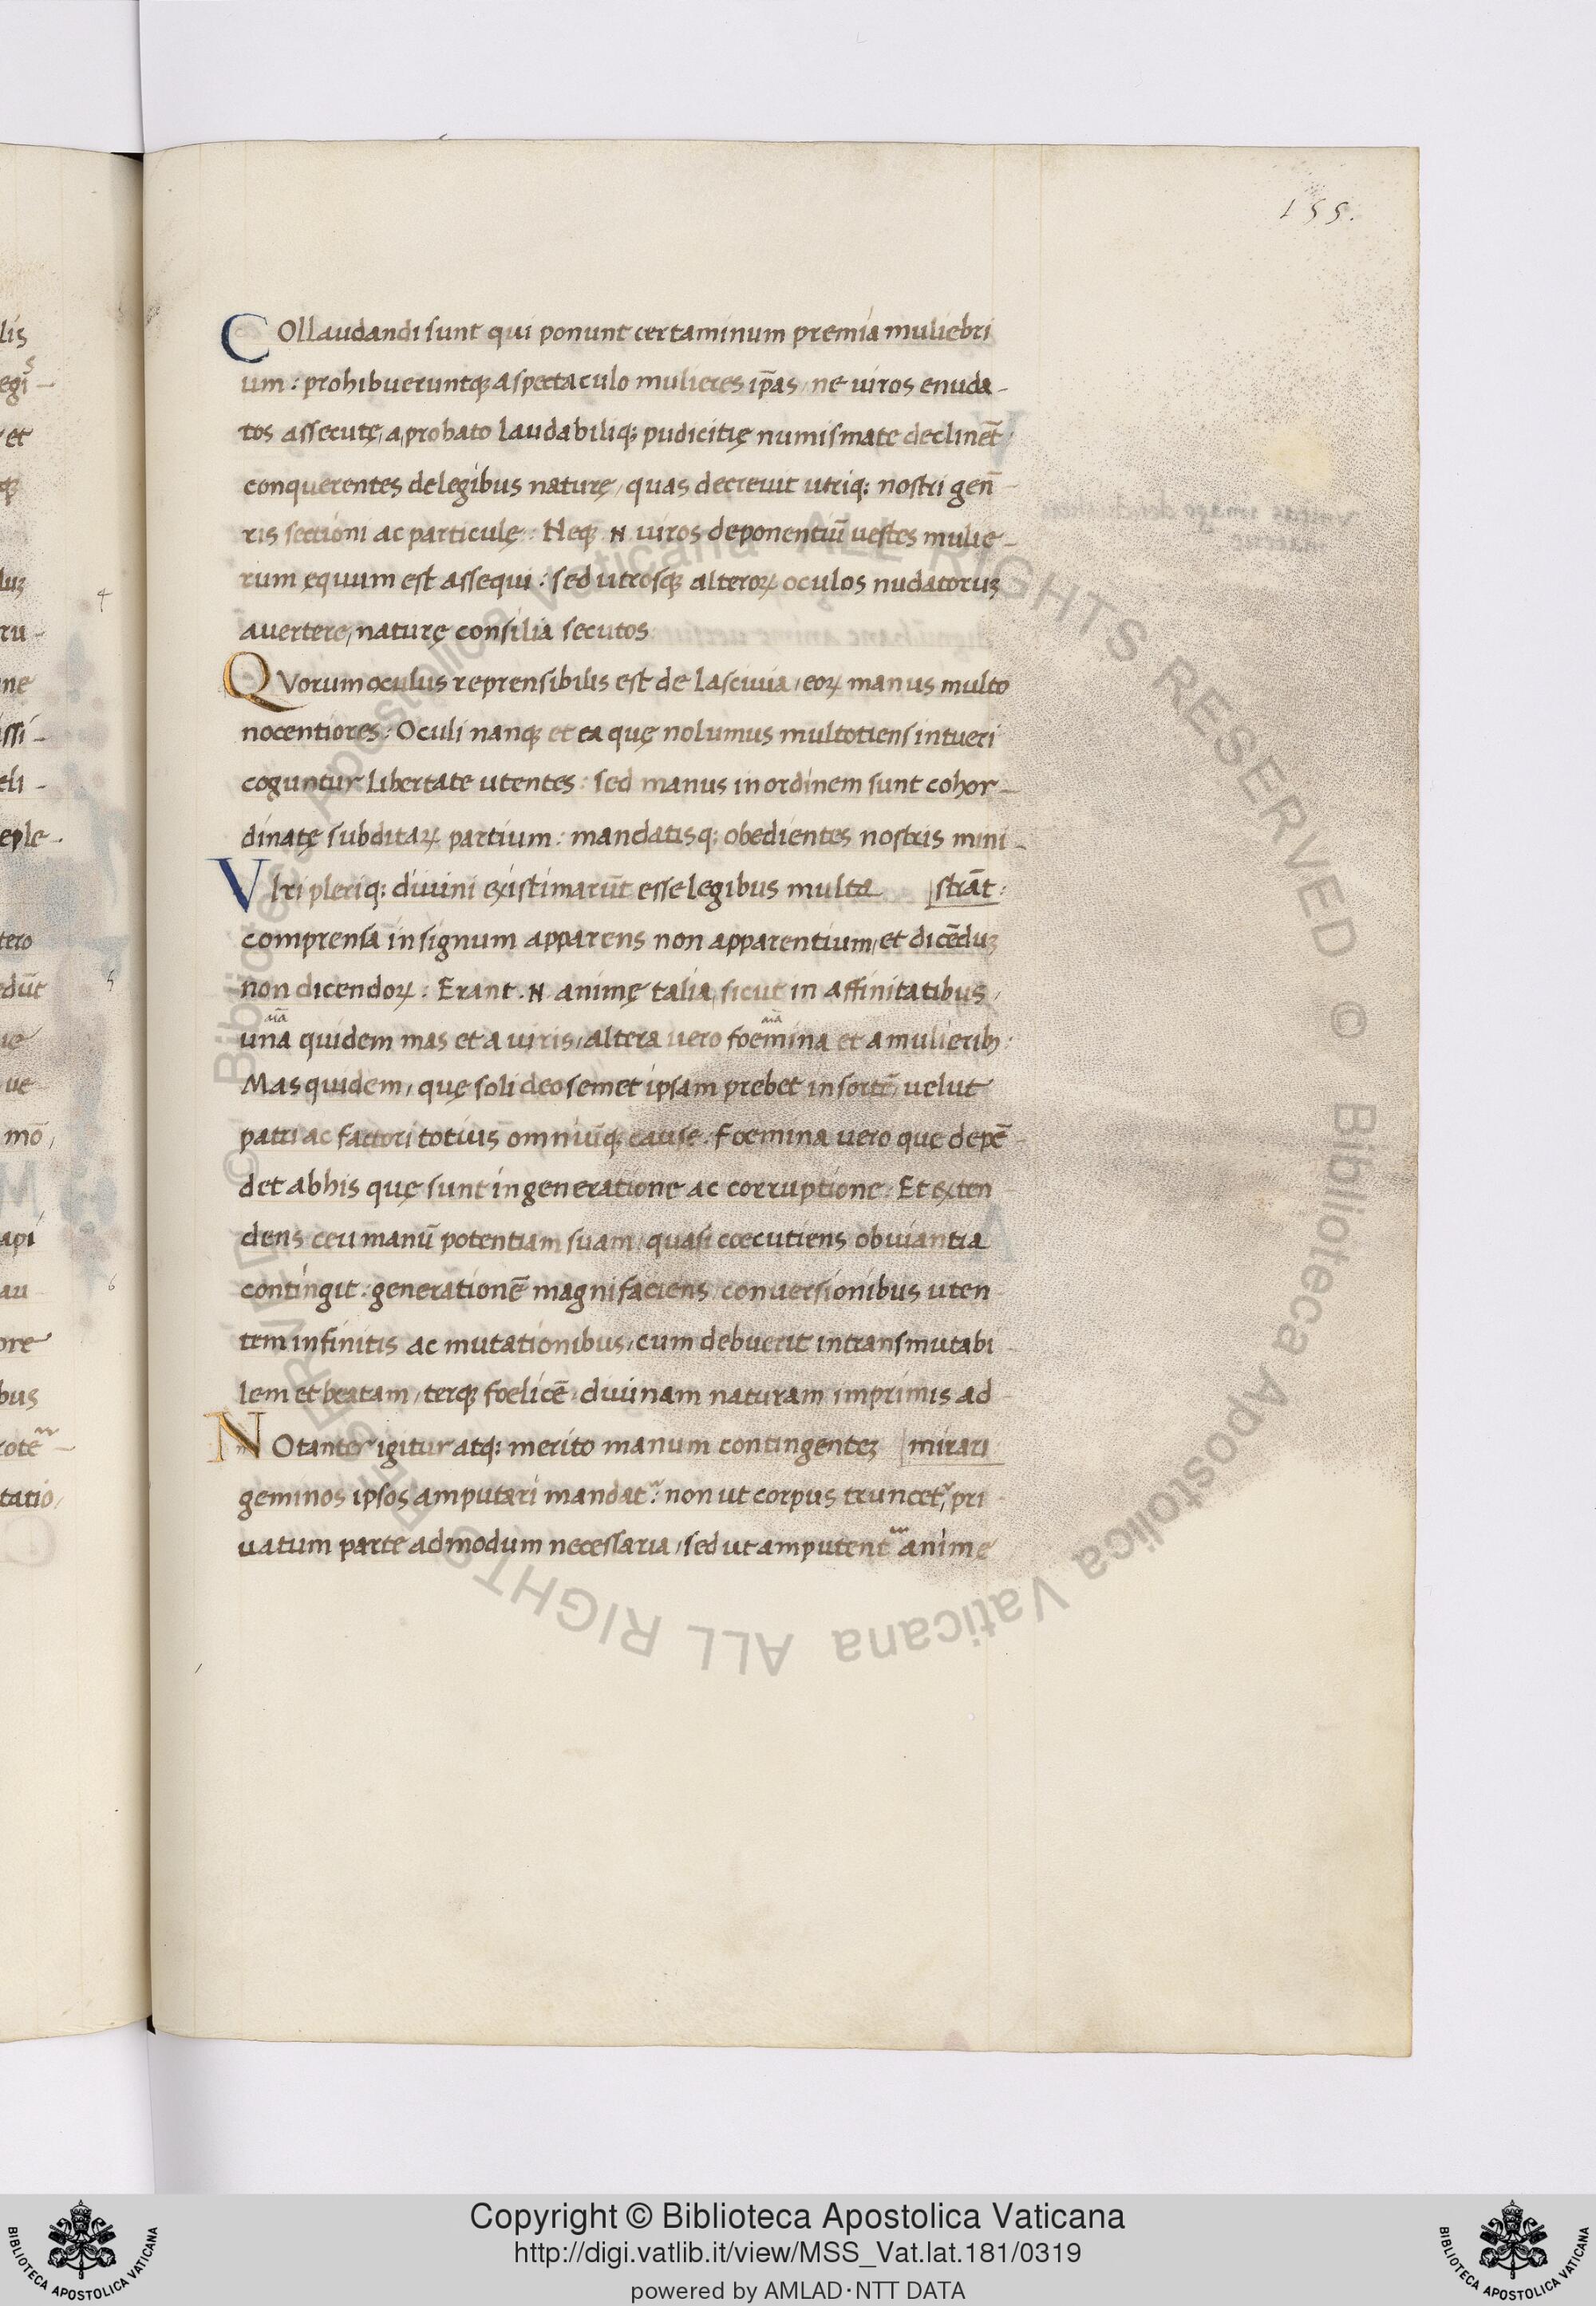 155.
COllaudandi sunt qui ponunt certaminum premia muliebri
um : prohibueruntqꝫ aspectaculo mulieres ip̄as, ne uiros enuda-
tos assecutę, aprobato laudabiliqꝫ pudicitię numismate declinēt,
conquerentes delegibus naturę, quas decreuit utriqꝫ nostri gen̄-
ris sectioni ac particulę : Neqꝫ .N. uiros deponentiū uestes mulie-
rum ęquum est assequi : sed utrosqꝫ alteroꝝ oculos nudatoruꝫ
auertere, naturę consilia secutos
QVorum oculus reprensibilis est de lasciuia, eoꝝ manus multo
nocentiores : Oculi nanqꝫ et ea quę nolumus multotiens intueri
coguntur libertate utentes : sed manus in ordinem sunt cohor-
dinatę subditaꝝ partium : mandatisqꝫ obedientes nostris mini-
VIri pleriqꝫ diuini existimarūt esse legibus multa strāt :
comprensa in signum apparens non apparentium, et dicēduꝫ
non dicendoꝝ : Erant .N. animę talia, sicut in affinitatibus,
una quidem mas et a uiris, altera uero foemina et a mulierib; :
Mas quidem, quę soli deo semet ipsam prebet in sortē, uelut
patri ac factori totius omniūqꝫ cause. Foemina uero que depē-
det abhis quę sunt in generatione ac corruptione : Et exten
dens ceu manū potentiam suam, quasi coecutiens obuiantia
contingit : generationē magnifaciens, conuersionibus uten-
tem infinitis ac mutationibus, cum debuerit intransmutabi-
lem et beatam, terqꝫ foelicē diuinam naturam imprimis ad-
NOtanter igitur atqꝫ merito manum contingenteꝫ mirari
geminos ipsos amputari mandat᷑ : non ut corpus truncet᷑, pri-
uatum parte admodum necessaria, sed ut amputent᷑ anime
lis
et
ru-
ne
issi-
eli-
eple-
tero
edūt
ue
mō,
api
au
ore
bus
tatio,
4
5
6
© Biblioteca Apostolica Vaticana ALL RIGHTS RESERVED © Biblioteca Apostolica Vaticana ALL RIGHTS RESERVED
BIBLIOTECA APOSTOLICA VATICANA
Copyright © Biblioteca Apostolica Vaticana
http://digi.vatlib.it/view/MSS_Vat.lat.181/0319
powered by AMLAD·NTT DATA
BIBLIOTECA APOSTOLICA VATICANA